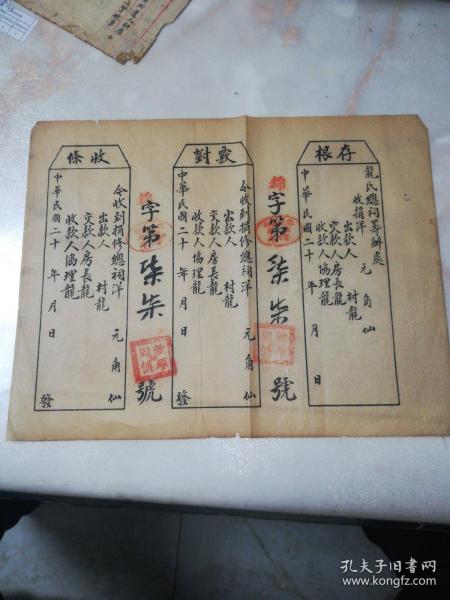 存根
龍氏總祠籌辦處
收捐洋 元 角 仙
出款人 村龍
交款人房長龍
收款人協理龍
中華民國二十 年 月 日
錦字第柒柒號
對覈
今收到捐修總祠洋 元 角 仙
出款人 村龍
交款人房長龍
收款人協理龍
中華民國二十 年 月 日 發
字第柒柒號
收條
今收到捐修總祠洋 元 角 仙
出款人 村龍
交款人房長龍
收款人協理龍
中華民國二十 年 月 日 發
孔夫子旧书网
www.kongfz.com